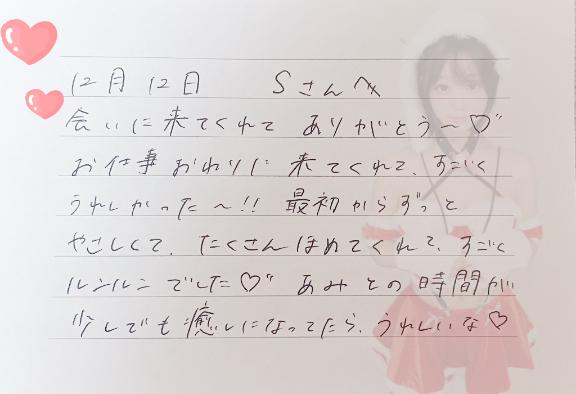 12月12日 Sさんへ
会いに来てくれて ありがとう〜♡"
お仕事おわりに 来てくれて、すごく
うれしかった〜!! 最初からずっと
やさしくて、たくさんほめてくれて、すごく
ルンルンでした♡" あみとの時間が
少しでも癒しになってたら、うれしいな♡